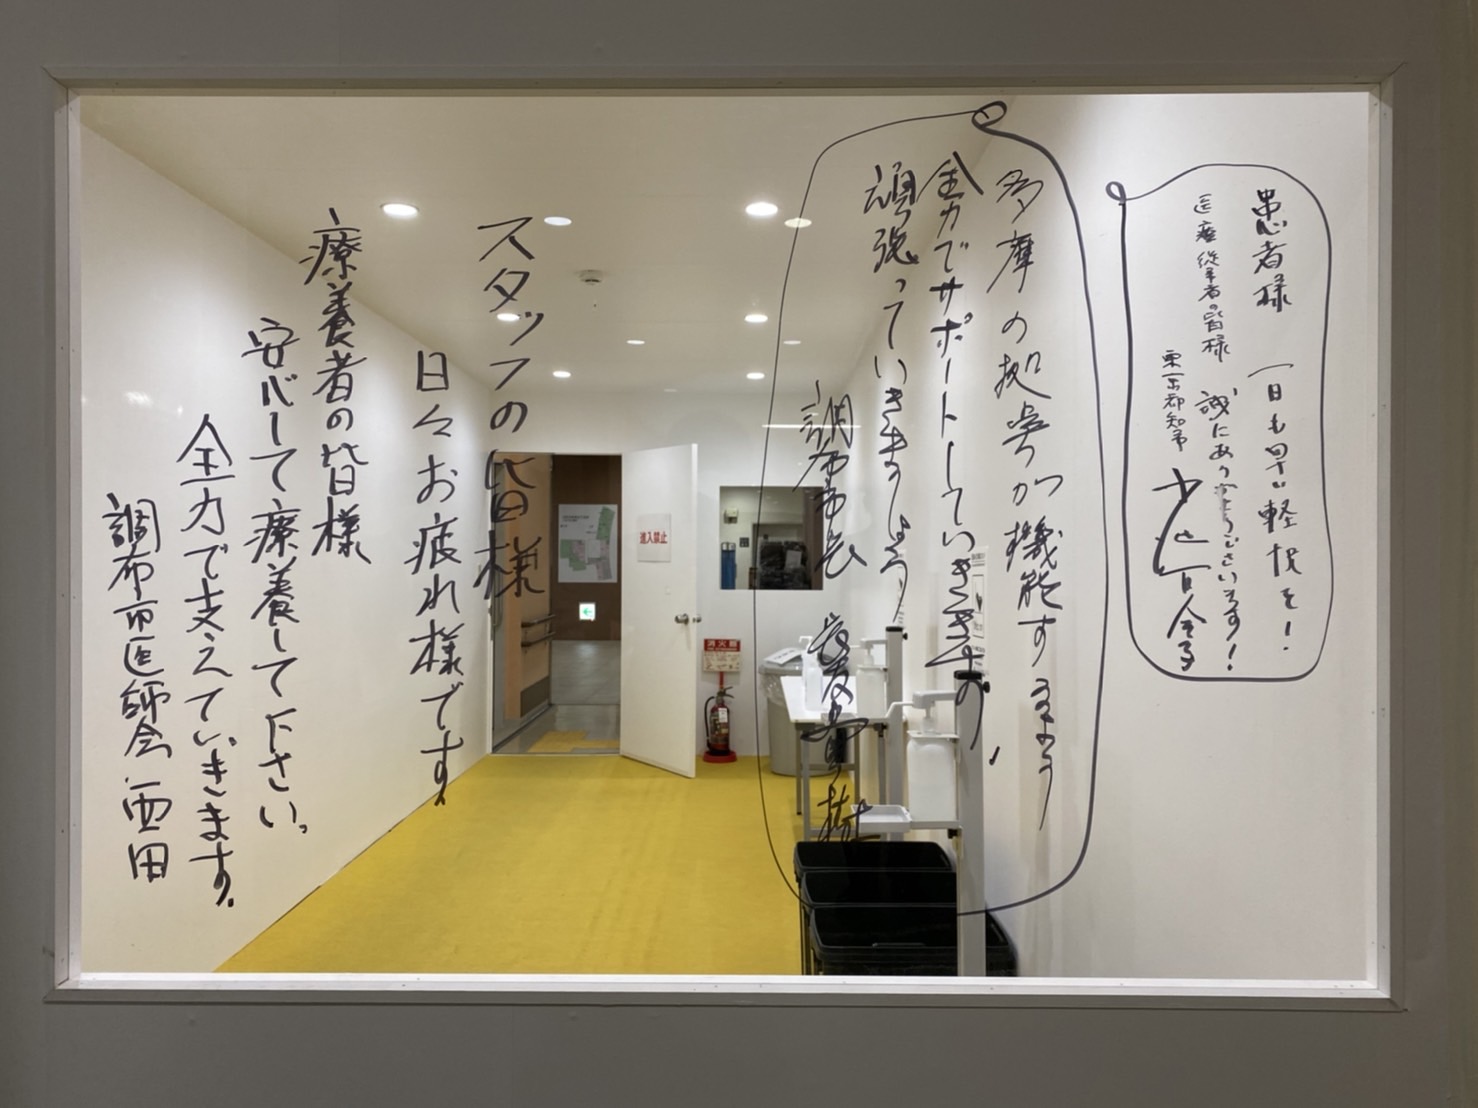 患者様 一日も早い軽快を!
医療従事者の皆様 誠にありがとうございます!
東京都知事 小池百合子
多摩の拠点が機能するよう
全力でサポートしていきますの、
頑張っていきましょう
調布市長 長友貴樹
スタッフの皆様
日々お疲れ様です。
療養者の皆様
安心して療養して下さい。
全力で支えていきます。
調布市医師会 西田
進入禁止
消火器